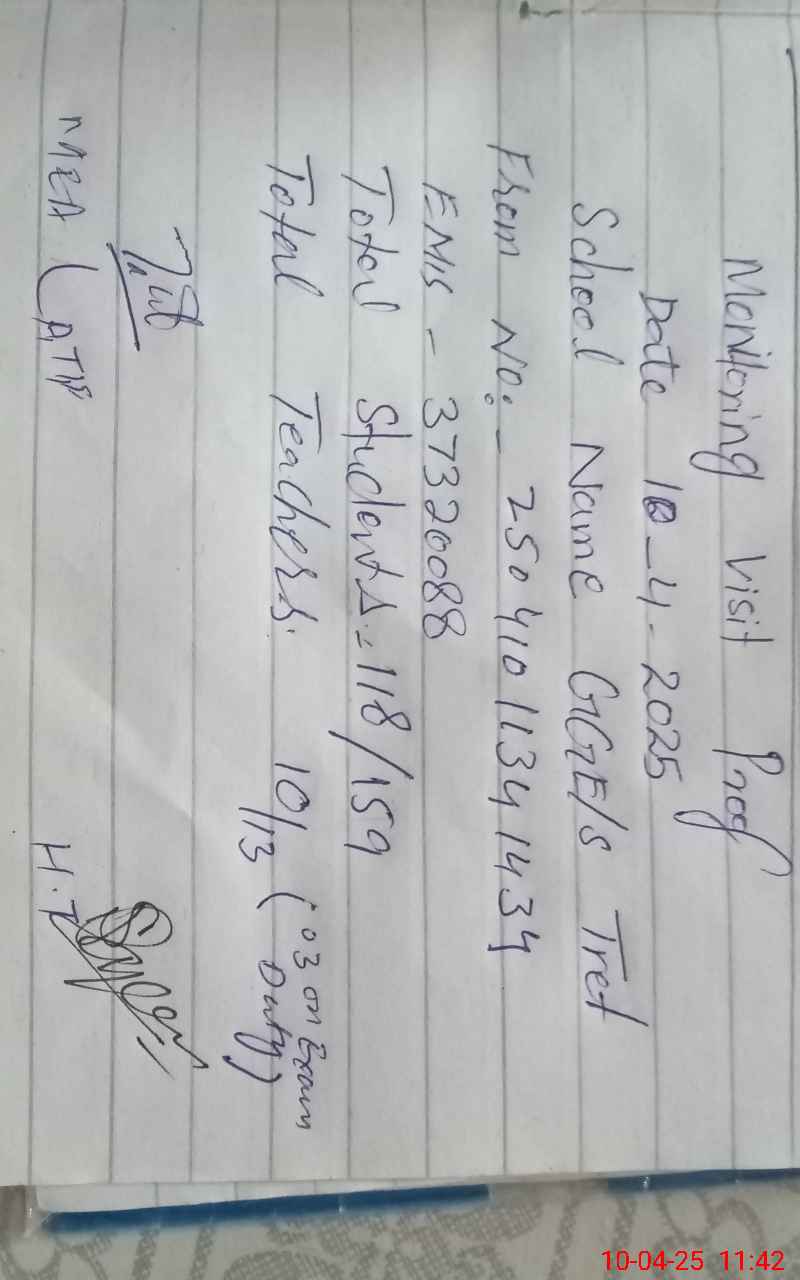 Monitoring Visit Prof
Date 10-4-2025
School Name GGE/S Tret
From No:- 25041011341434
EMIS - 37320088
Total Students:- 118/159
Total Teachers. 10/13 (03 on Exam Duty)
MEA (ATD
H.T
10-04-25 11:42